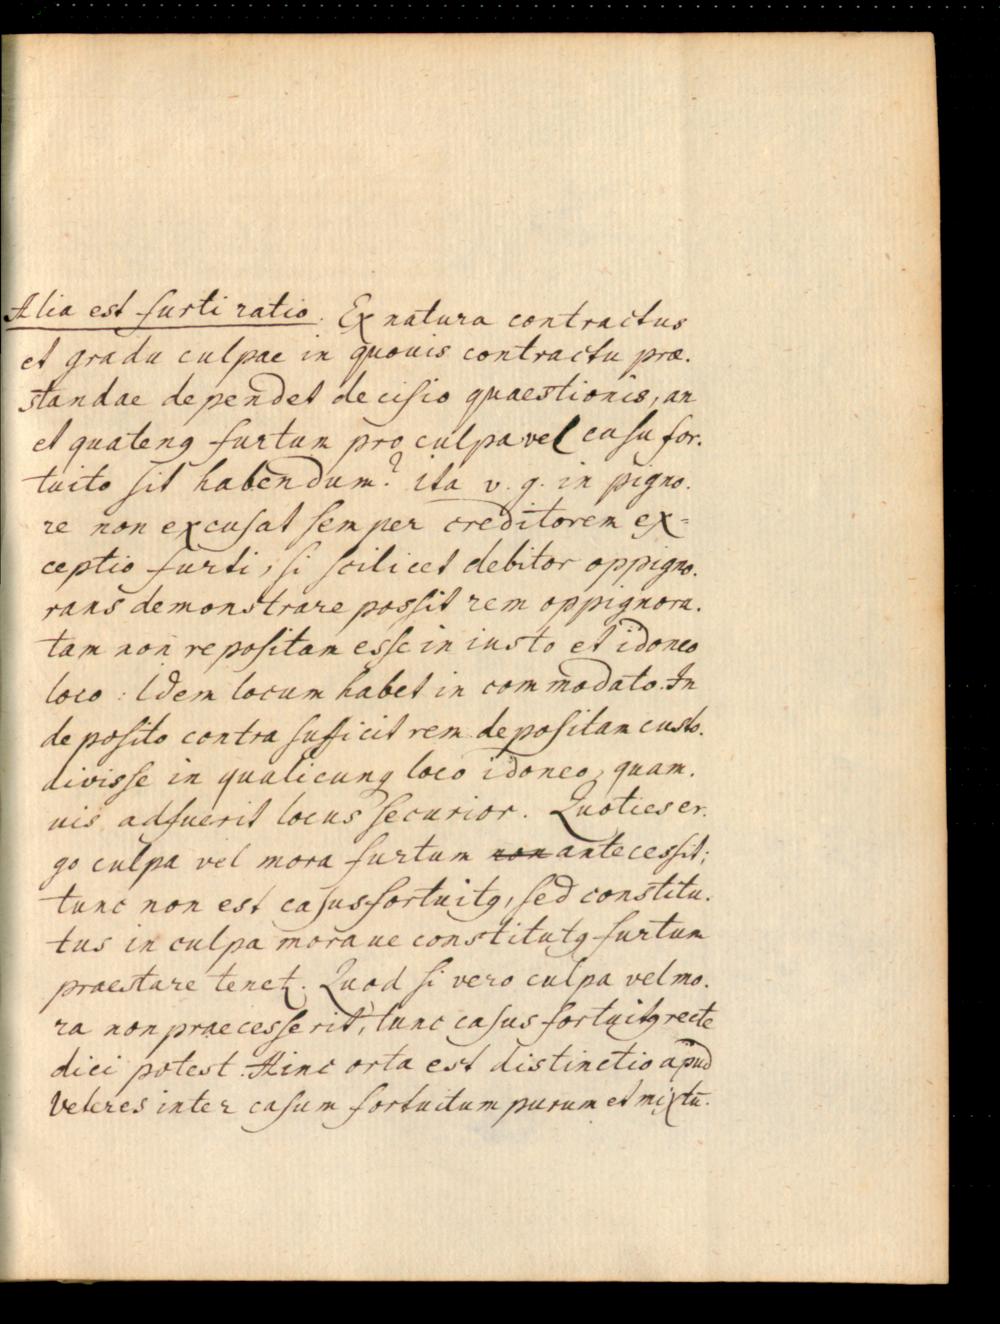 Alia est furti ratio. Ex natura contractus
et gradu culpae in quouis contractu prae.
standae dependet decisio quaestionis, an
et quatenq furtum pro culpa vel casu for.
tuito sit habendum? ita v. g. in pigno.
re non excusat semper creditorem ex=
ceptio furti, si scilicet debitor oppigno.
rans demonstrare possit rem oppignora.
tam non repositam esse in iusto et idoneo
loco: Idem locum habet in commodato. In
deposito contra suficit rem depositam custo.
divisse in qualicunq loco idoneo, quam.
uis adfuerit locus securior. Quoties er.
go culpa vel mora furtum non antecessit;
tunc non est casus fortuitq, sed constitu.
tus in culpa moraue constitutq furtum
praestare tenet. Quod si vero culpa vel mo.
ra non praecesserit, tunc casus fortuitq recte
dici potest. Hinc orta est distinctio apud
veteres inter casum fortuitum purum et mixtū.